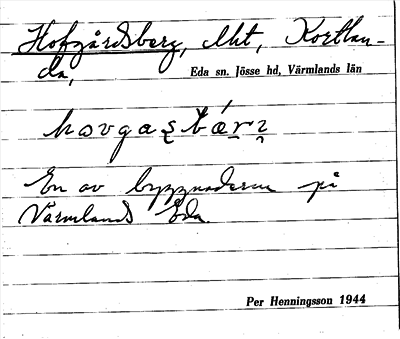 Hofgårdsberg, Mt, Kortlan-
da,
Eda sn. Jösse hd, Värmlands län
En av byggnaderna på
Värmlands Eda.
Per Henningsson 1944